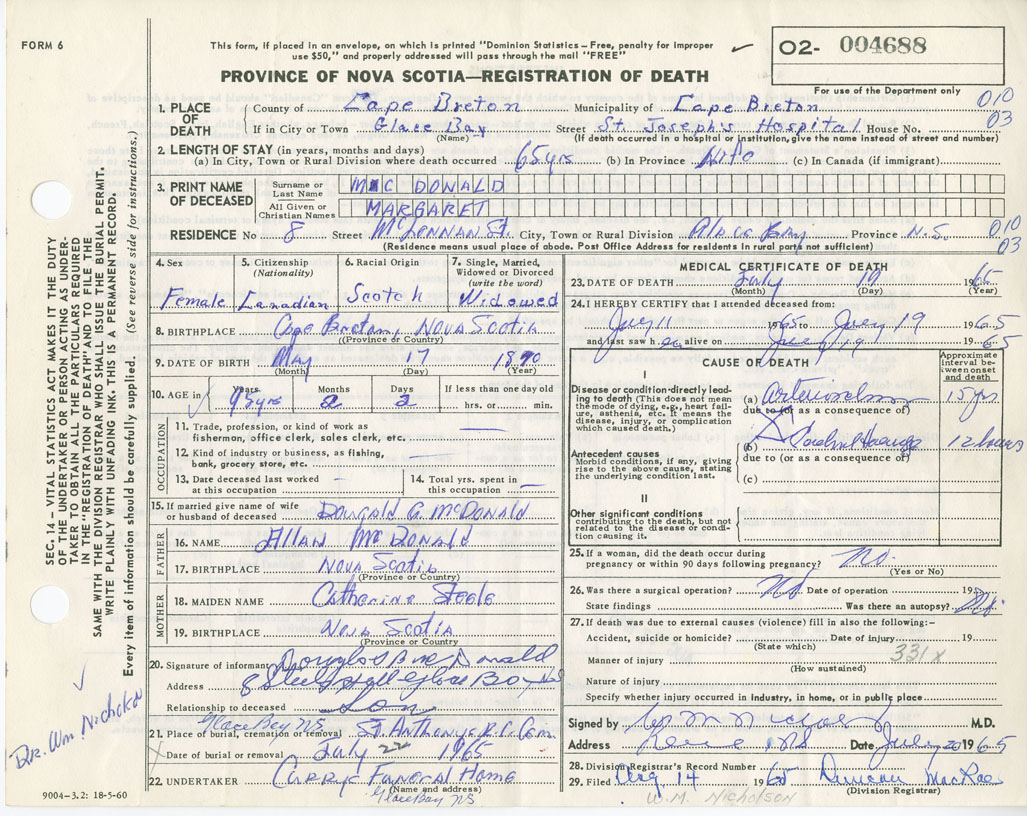 FORM 6
This form, if placed in an envelope, on which is printed "Dominion Statistics – Free, penalty for improper
use $50," and properly addressed will pass through the mail "FREE"
O2- 004688
For use of the Department only
PROVINCE OF NOVA SCOTIA—REGISTRATION OF DEATH
010
03
1. PLACE OF DEATH County of Cape Breton Municipality of Cape Breton
If in City or Town Glace Bay Street St. Joseph's Hospital House No.
(Name) (If death occurred in a hospital or institution, give name instead of street and number)
2. LENGTH OF STAY (in years, months and days)
(a) In City, Town or Rural Division where death occurred 65 yrs (b) In Province Life (c) In Canada (if immigrant)
3. PRINT NAME OF DECEASED Surname or Last Name MAC DONALD
All Given or Christian Names MARGARET
RESIDENCE No 8 Street McLennan St. City, Town or Rural Division Glace Bay Province N.S. 010
(Residence means usual place of abode. Post Office Address for residents in rural parts not sufficient) 03
4. Sex Female
5. Citizenship (Nationality) Canadian
6. Racial Origin Scotch
7. Single, Married, Widowed or Divorced (write the word) Widowed
8. BIRTHPLACE Cape Breton, Nova Scotia
(Province or Country)
9. DATE OF BIRTH May 17 18
(Month) (Day) (Year)
10. AGE in Years Months Days If less than one day old
yrs 2 2 hrs. or min.
OCCUPATION
11. Trade, profession, or kind of work as
fisherman, office clerk, sales clerk, etc. —
12. Kind of industry or business, as fishing,
bank, grocery store, etc. —
13. Date deceased last worked at this occupation —
14. Total yrs. spent in this occupation —
15. If married give name of wife
or husband of deceased Dougald G. McDonald
FATHER
16. NAME Allan McDonald
17. BIRTHPLACE Nova Scotia
(Province or Country)
MOTHER
18. MAIDEN NAME Catherine Steele
19. BIRTHPLACE Nova Scotia
(Province or Country)
20. Signature of informant Donald
Address 8 Glace Bay NS
Relationship to deceased Son
Glace Bay NS
21. Place of burial, cremation or removal St. Anthony R.C. Cem.
Date of burial or removal July 22 1965
22. UNDERTAKER Curry Funeral Home
(Name and address)
Glace Bay NS
MEDICAL CERTIFICATE OF DEATH
23. DATE OF DEATH July 19 1965
(Month) (Day) (Year)
24. I HEREBY CERTIFY that I attended deceased from:
July 11 1965 to July 19 1965
and last saw h er alive on July 19 1965
CAUSE OF DEATH
Approximate interval between onset and death
I
Disease or condition directly leading to death (This does not mean the mode of dying, e.g., heart failure, asthenia, etc. It means the disease, injury, or complication which caused death.)
(a) 15 yrs
due to (or as a consequence of)
(b) 12 hours
Antecedent causes
Morbid conditions, if any, giving rise to the above cause, stating the underlying condition last.
due to (or as a consequence of)
(c)
II
Other significant conditions
contributing to the death, but not related to the disease or condition causing it.
25. If a woman, did the death occur during
pregnancy or within 90 days following pregnancy? No.
(Yes or No)
26. Was there a surgical operation? No Date of operation 19
State findings Was there an autopsy? No.
27. If death was due to external causes (violence) fill in also the following:–
Accident, suicide or homicide? Date of injury 19
(State which)
331x
Manner of injury
(How sustained)
Nature of injury
Specify whether injury occurred in industry, in home, or in public place
Signed by M.D.
Address NS Date July 20 1965
28. Division Registrar's Record Number
29. Filed Aug 14 1965 Duncan MacRae
(Division Registrar)
W.M. NICHOLSON
SEC. 14 – VITAL STATISTICS ACT MAKES IT THE DUTY
OF THE UNDERTAKER OR PERSON ACTING AS UNDER-
TAKER TO OBTAIN ALL THE PARTICULARS REQUIRED
IN THE "REGISTRATION OF DEATH" AND TO FILE THE
SAME WITH THE DIVISION REGISTRAR WHO SHALL ISSUE THE BURIAL PERMIT.
WRITE PLAINLY WITH UNFADING INK. THIS IS A PERMANENT RECORD.
Every item of information should be carefully supplied. (See reverse side for instructions.)
Dr. Wm Nicholson
9004–3.2: 18-5-60